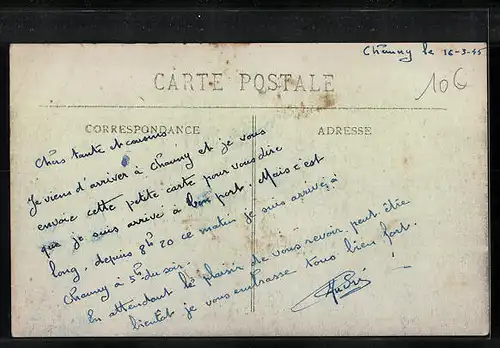 Chauny le 16-3-45
CARTE POSTALE
10G
CORRESPONDANCE
ADRESSE
Chers tante et cousins
Je viens d'arriver à Chauny et je vous
envoie cette petite carte pour vous dire
que je suis arrivé à bon port. Mais c'est
long, depuis 8h 20 ce matin je suis arrivé à
Chauny à 5h du soir.
En attendant le plaisir de vous revoir peut être
bientôt je vous embrasse tous bien fort.
André